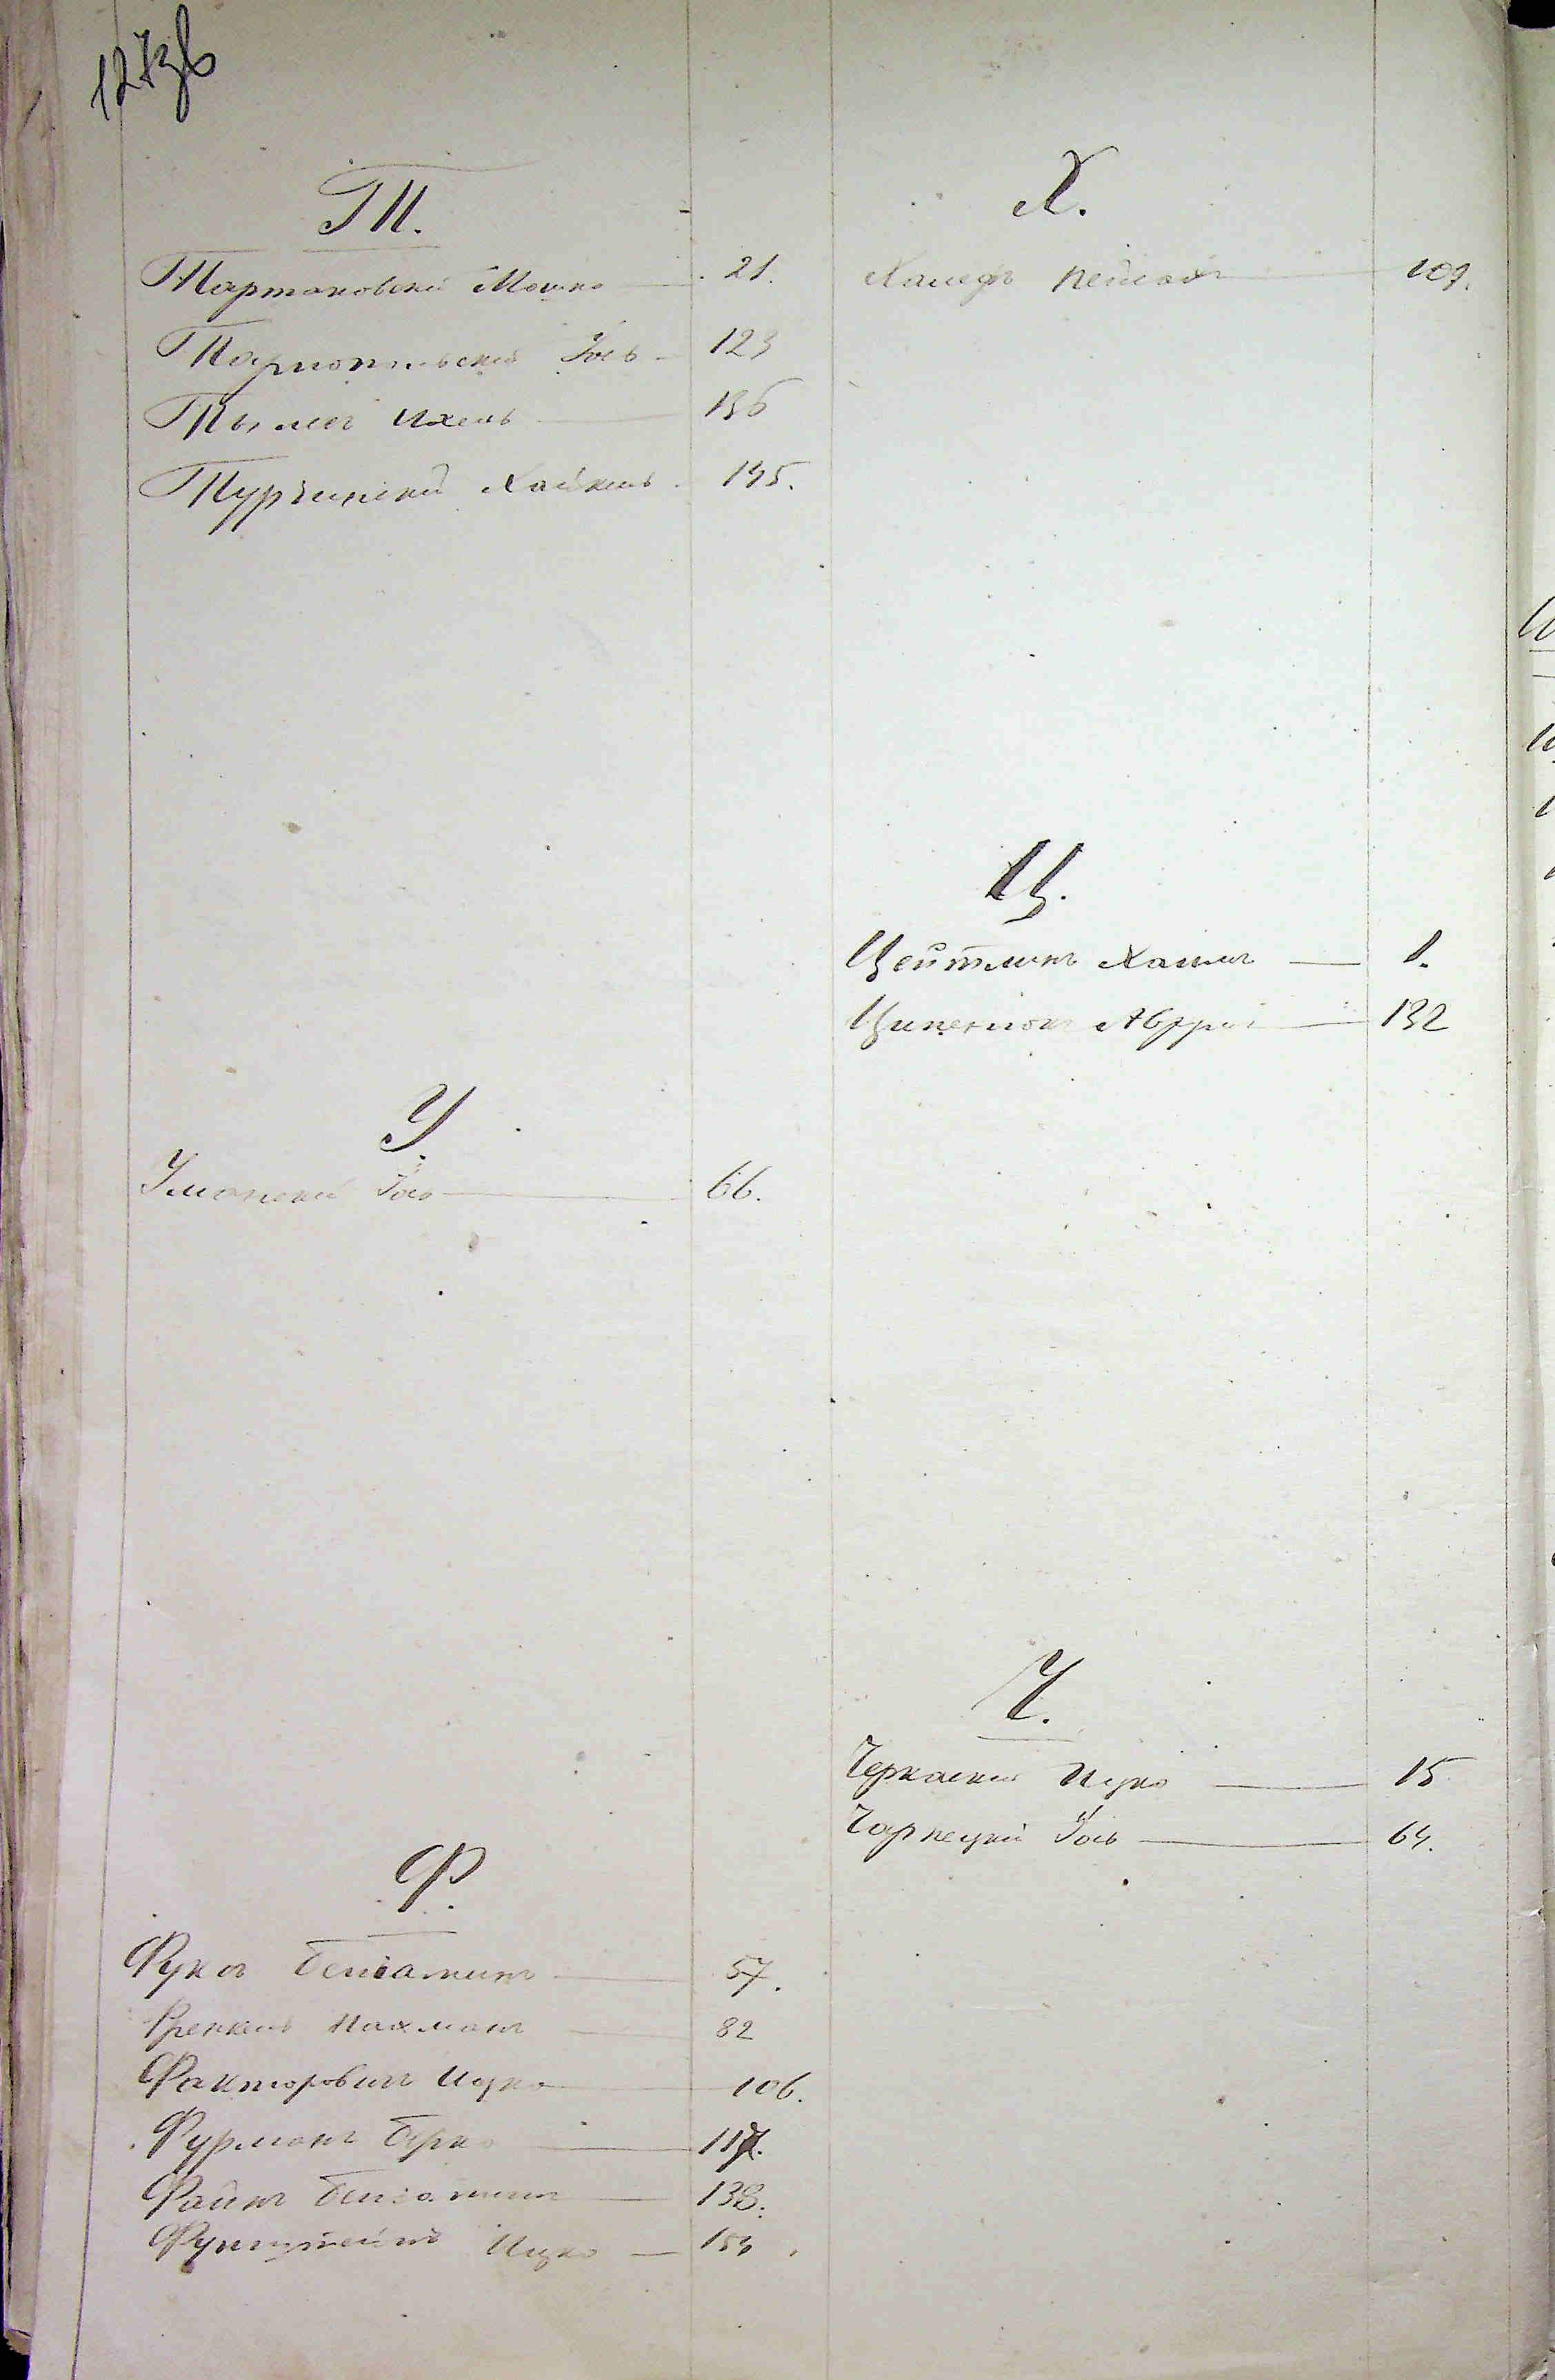 127зв
Т.
Тартаковскій Мошко 21.
Тарнопольскій Іось 123
Тымегъ Ихель 136
Турчинскій Хайкель 145.
У.
Уманскій Іось 66.
Ф.
Фуксъ Беніаминъ 57.
Френкель Нахманъ 82
Факторовичъ Ицко 106.
Фурманъ Берко 117.
Файнъ Беніаминъ 138.
Фунштейнъ Ицко 154
Х.
Халефъ Пейсахъ 109.
Ц.
Цейтлинъ Хаимъ 1.
Ципенюкъ 132
Ч.
Черкаскій Ицко 15
Чарнецкій Іось 64.